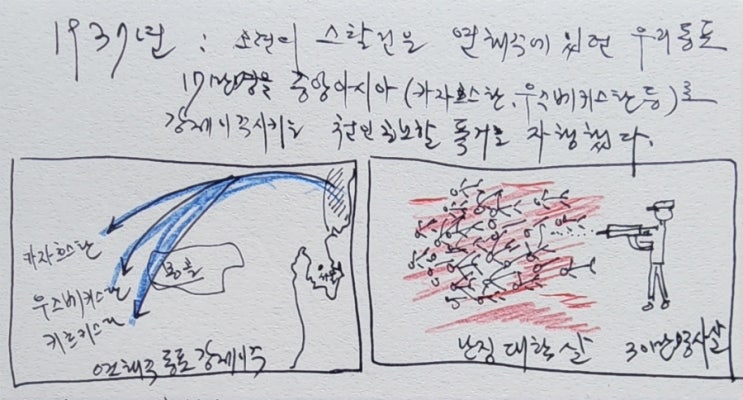 1937년 : 소련의 스탈린은 연해주에 있던 우리동포
17만명을 중앙아시아 (카자흐스탄, 우즈베키스탄 등)로
강제이주시키는 천인공노할 폭거를 자행했다.
카자흐스탄
우즈베키스탄
키르키스탄
몽골
서울
연해주 동포 강제이주
난징 대학살
30만명 사살